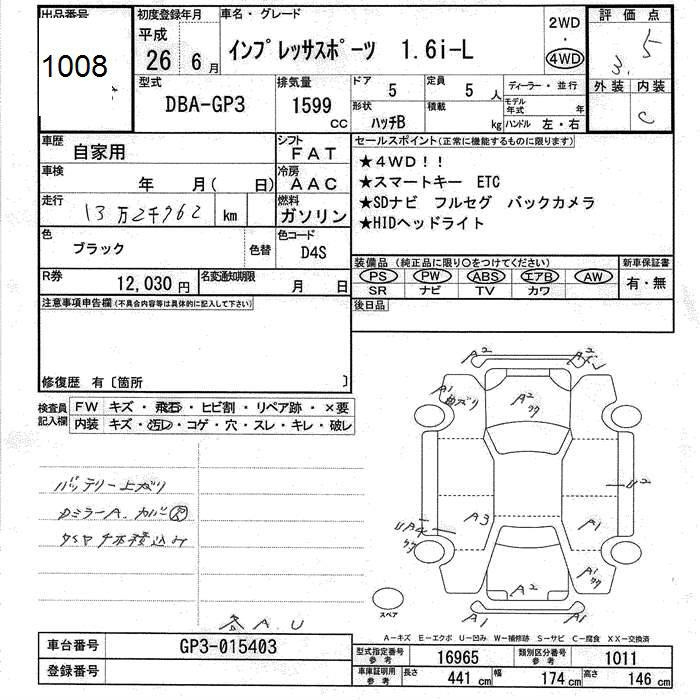 出品番号
1008
初度登録年月
平成
26 6月
車名・グレード
インプレッサスポーツ 1.6i-L
2WD
・
4WD
評価点
3.5
外装 内装
C
型式
DBA-GP3
排気量
1599
CC
ドア
5
定員
5人
形状
ハッチB
積載
kg
ディーラー・並行
モデル年式 年
ハンドル 左・右
車歴
自家用
シフト
FAT
車検
年 月( 日)
冷房
AAC
走行
13万2千762 km
燃料
ガソリン
色
ブラック
色替
色コード
D4S
R券
12,030円
名変通知期限
月 日
セールスポイント(正常に機能するものに限ります)
★4WD!!
★スマートキー ETC
★SDナビ フルセグ バックカメラ
★HIDヘッドライト
装備品(純正品に限り○をつけてください)
新車保証書
PS PW ABS エアB AW
SR ナビ TV カワ
有・無
後日品
注意事項申告欄(不具合内容等は具体的に記入して下さい)
修復歴 有〔箇所 〕
検査員記入欄
FW キズ・飛石・ヒビ割・リペア跡・×要
内装 キズ・汚レ・コゲ・穴・スレ・キレ・破レ
バッテリー上ガリ
DミラーA.カバー
タイヤ4本積込み
各A.U
A2
A2
A1
A2
A3
A1
A1
A2
A1
A1
U2
スペア
A−キズ E−エクボ U−凹み W−補修跡 S−サビ C−腐食 XX−交換済
車台番号
GP3-015403
登録番号
型式指定番号 参考
16965
類別区分番号 参考
1011
車庫証明用 参考
長さ 441cm 幅 174cm 高さ 146cm